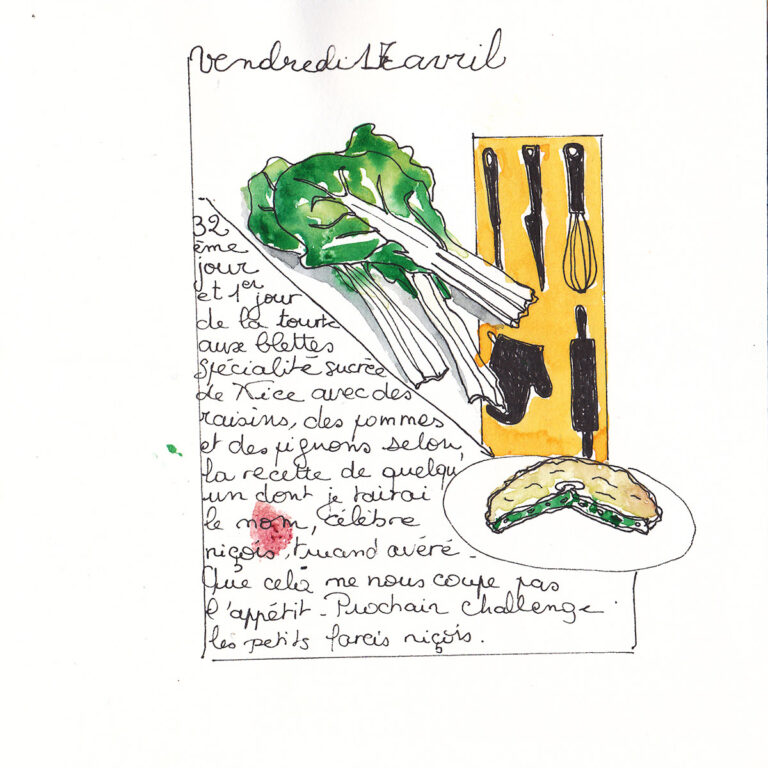 vendredi 17 avril
32
ème
jour
et 1er jour
de la tourte
aux blettes
spécialité sucrée
de Nice avec des
raisins, des pommes
et des pignons selon
la recette de quelqu'
un dont je tairai
le nom, célèbre
niçois, truand avéré.
Que celà ne nous coupe pas
l'appétit - Prochain challenge
les petits farcis niçois.